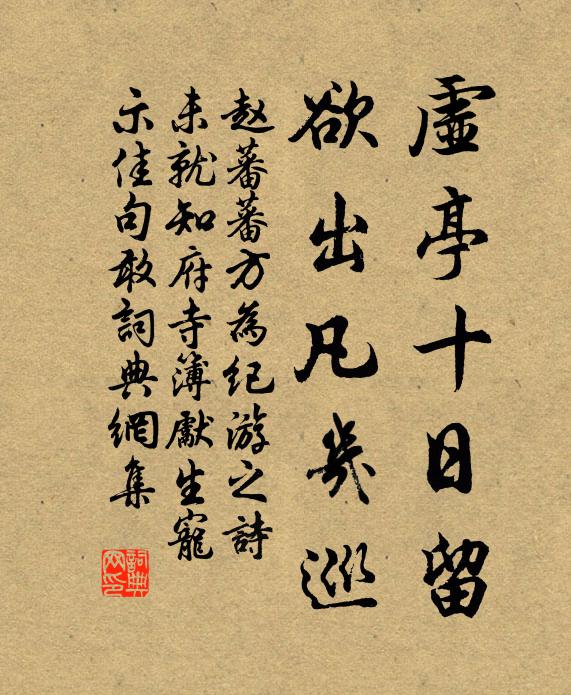 虛亭十日留
欲出凡幾巡
赵蕃蕃方為紀游之詩
未就知府寺簿獻生寵
示佳句敢詞典網集
詞典
网印